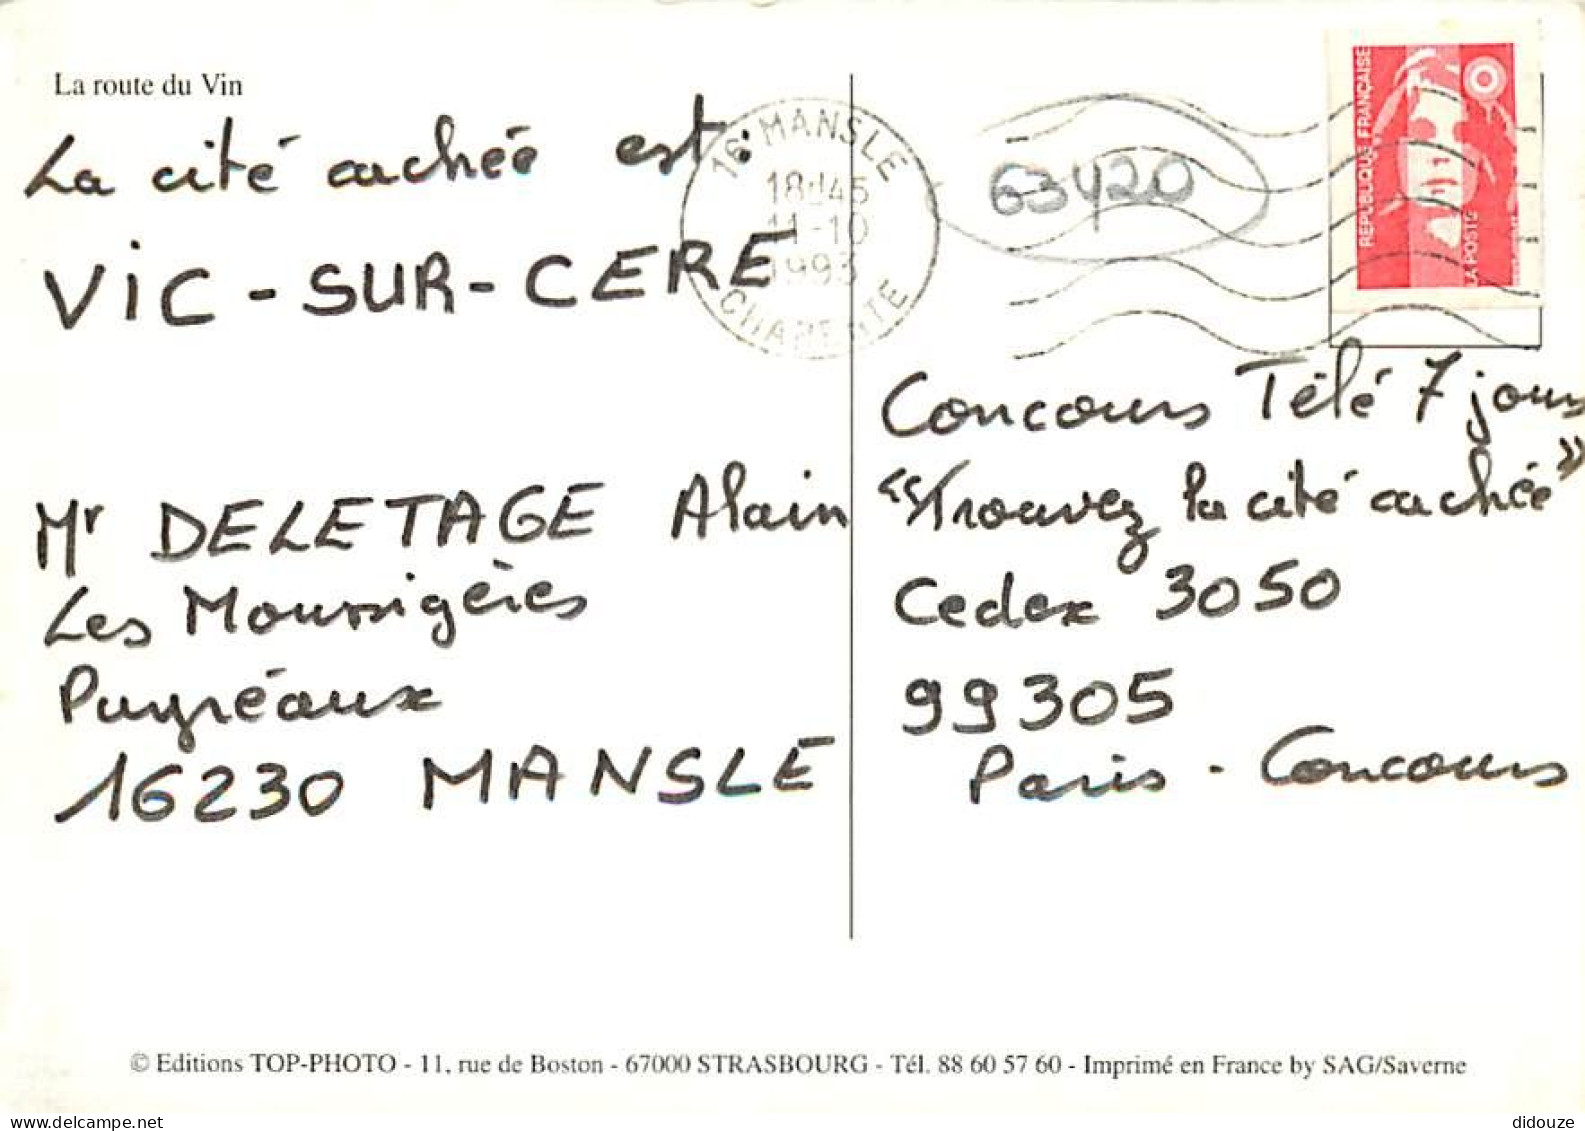 La route du Vin
La cité cachée est:
VIC-SUR-CERE
Mr DELETAGE Alain
Les Moussigères
Puyréaux
16230 MANSLE
16 MANSLE
18H45
11-10
1993
CHARENTE
63420
RÉPUBLIQUE FRANÇAISE
LA POSTE
Concours Télé 7 jours
"Trouvez la cité cachée"
Cedex 3050
99305
Paris - Concours
© Editions TOP-PHOTO - 11, rue de Boston - 67000 STRASBOURG - Tél. 88 60 57 60 - Imprimé en France by SAG/Saverne
didouze